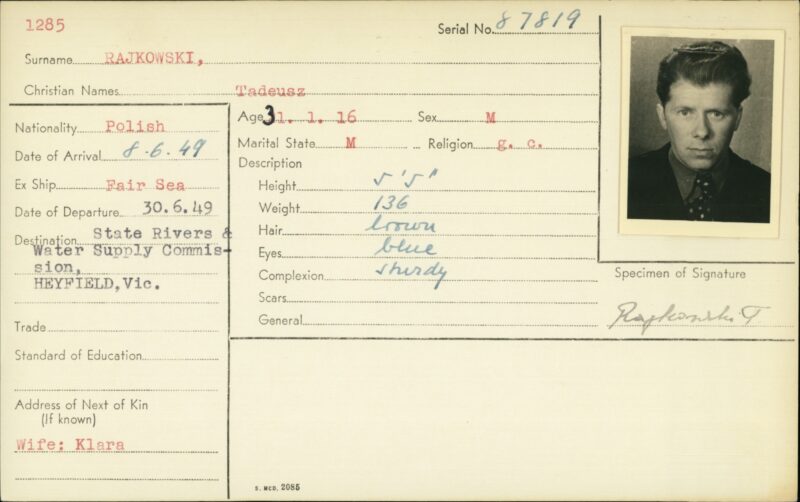 1285
Serial No. 87819
Surname RAJKOWSKI,
Christian Names Tadeusz
Nationality Polish
Date of Arrival 8.6.49
Ex Ship Fair Sea
Date of Departure 30.6.49
Destination State Rivers &
Water Supply Commis-
sion,
HEYFIELD, Vic.
Trade
Standard of Education
Address of Next of Kin
(If known)
Wife: Klara
Age 31. 1. 16 Sex M
Marital State M Religion g. c.
Description
Height 5'5"
Weight 136
Hair brown
Eyes blue
Complexion sturdy
Scars
General
Specimen of Signature
Rajkowski T
S. MCD. 2085